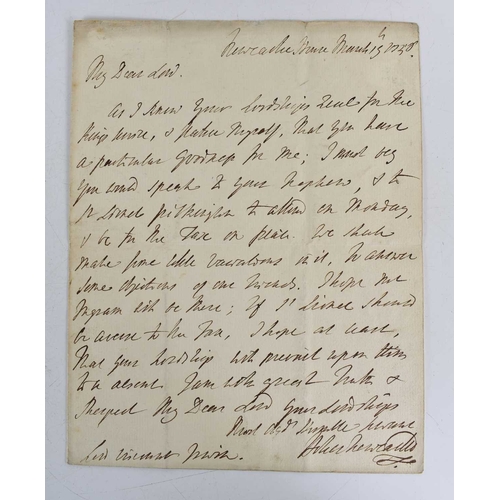 Newcastle House March 19th 1756.
My Dear Lord.
As I know your Lordships Zeal for the
Kings service, & flatter myself, that you have
a particular Goodness for me; I must beg
you would speak to your Nephews, & to
Sr Lionel Pilkington to attend on Monday,
& be for the Tax on plate. We shall
make some little variations in it, to answer
some objections of our friends. I hope Mr
Ingram will be there; If Sr Lionel should
be averse to the Tax, I hope at least,
that your Lordship will prevail upon him
to be absent. I am with great Truth &
Respect My Dear Lord your Lordships
Most Obt Humble servant
Holles Newcastle
Lord Viscount Irwin.